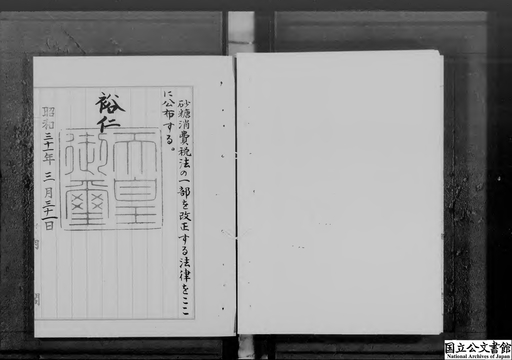 砂糖消費税法の一部を改正する法律をここ
に公布する。
裕仁
天皇
御璽
昭和三十一年三月三十一日
国立公文書館
National Archives of Japan